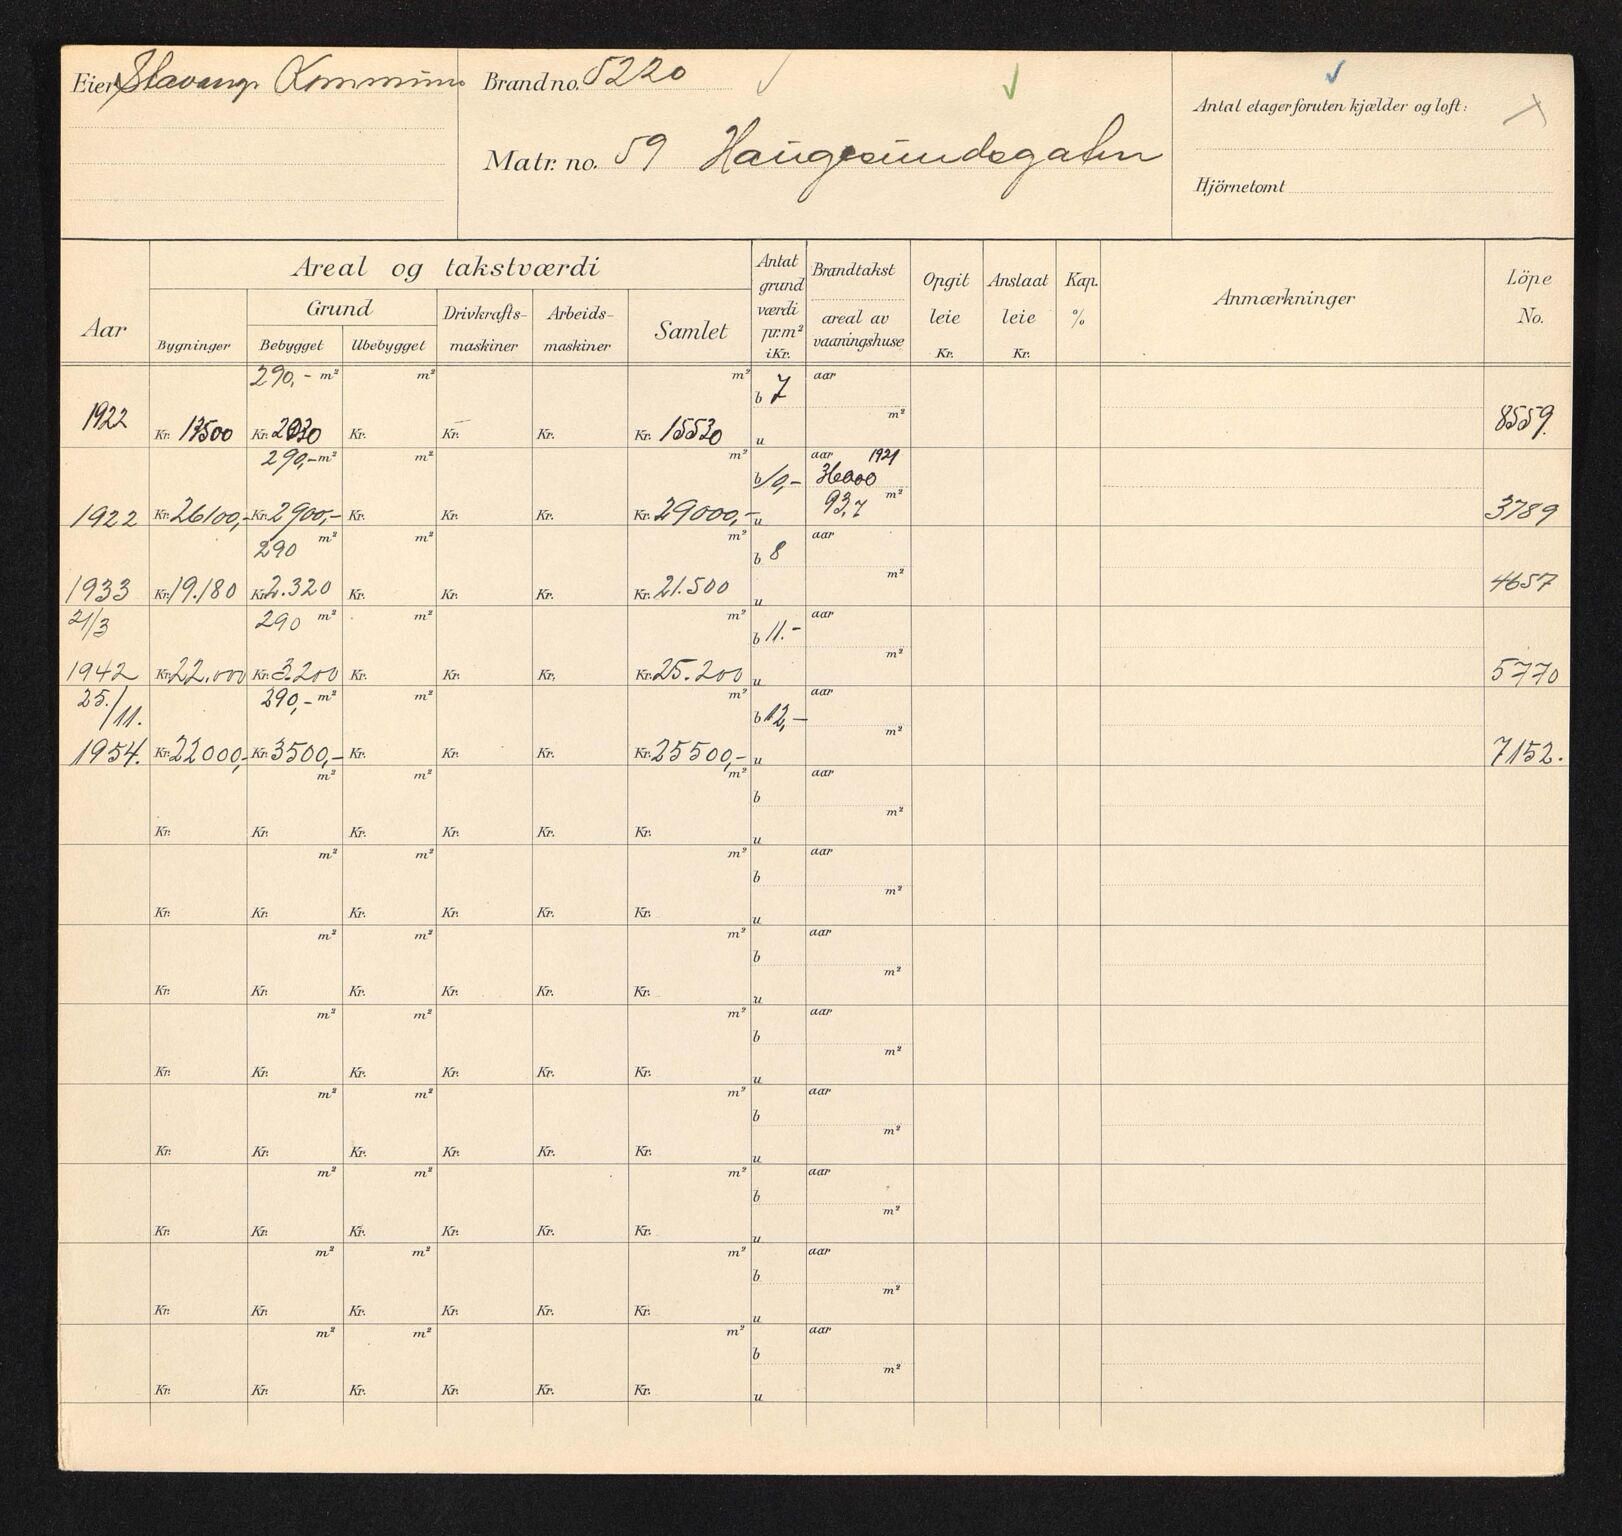 Eier Stavanger Kommune
Brand no. 5220
Matr. no. 59 Haugesundsgaten
Antal etager foruten kjælder og loft:
Hjörnetomt
Aar
Areal og takstværdi
Bygninger
Grund
Bebygget Ubebygget
Drivkrafts-
maskiner
Arbeids-
maskiner
Samlet
Antat
grund
værdi
pr.m²
i Kr.
Brandtakst
areal av
vaaningshuse
Opgit
leie
Kr.
Anslaat
leie
Kr.
Kap.
%
Anmærkninger
Löpe
No.
290,- m² m² m² b 7 aar
m²
1922 Kr. 13500 Kr. 2030 Kr. Kr. Kr. Kr. 15530 u 8559.
290,- m² m² m² b 10,- aar 1921
36000
93,7 m²
1922 Kr. 26100,- Kr. 2900,- Kr. Kr. Kr. Kr. 29000,- u 3789
290 m² m² m² b 8 aar
m²
1933 Kr. 19.180 Kr. 2.320 Kr. Kr. Kr. Kr. 21.500 u 4657
21/3 290 m² m² m² b 11.- aar
m²
1942 Kr. 22.000 Kr. 3.200 Kr. Kr. Kr. Kr. 25.200 u 5770
25./11. 290,- m² m² m² b 12,- aar
m²
1954. Kr. 22000,- Kr. 3500,- Kr. Kr. Kr. Kr. 25500,- u 7152.
m² m² m² b aar
m²
Kr. Kr. Kr. Kr. Kr. Kr. u
m² m² m² b aar
m²
Kr. Kr. Kr. Kr. Kr. Kr. u
m² m² m² b aar
m²
Kr. Kr. Kr. Kr. Kr. Kr. u
m² m² m² b aar
m²
Kr. Kr. Kr. Kr. Kr. Kr. u
m² m² m² b aar
m²
Kr. Kr. Kr. Kr. Kr. Kr. u
m² m² m² b aar
m²
Kr. Kr. Kr. Kr. Kr. Kr. u
m² m² m² b aar
m²
Kr. Kr. Kr. Kr. Kr. Kr. u
m² m² m² b aar
m²
Kr. Kr. Kr. Kr. Kr. Kr. u